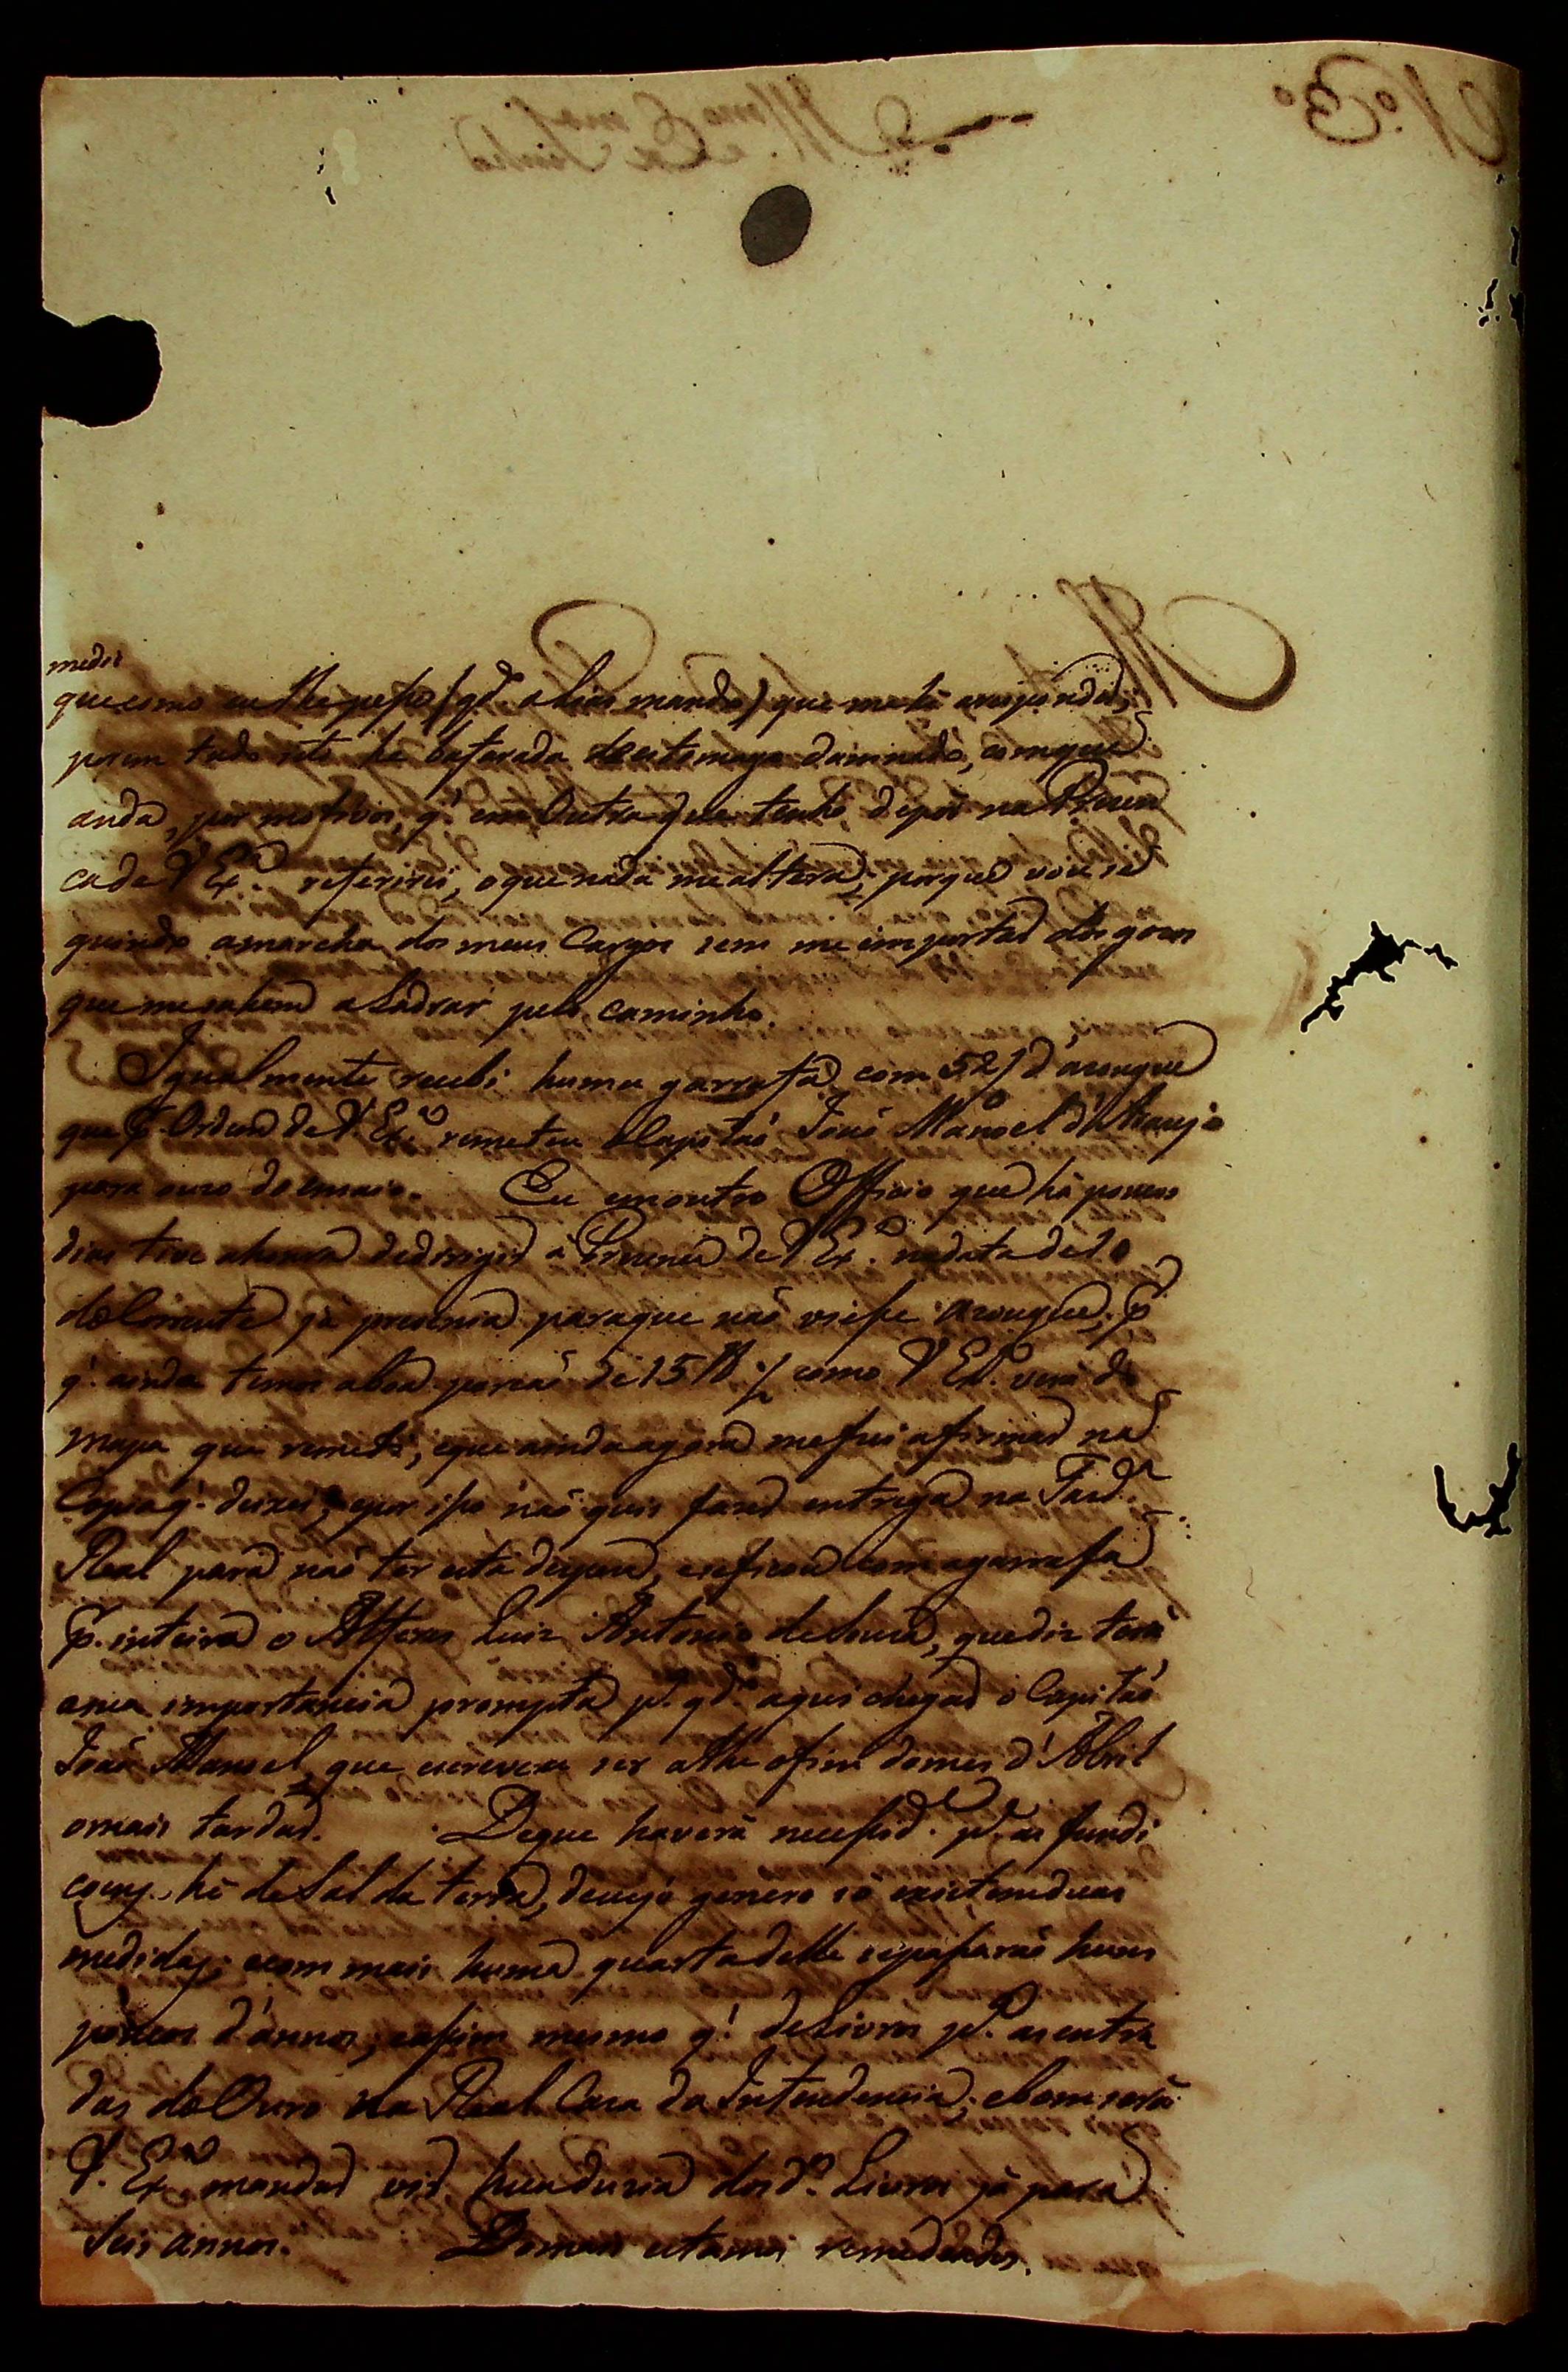 medir
que como eu lhe pesso (qdo alias mando) que me há arespondas;
porem tudo isto he bafarada de estomago daminado, com que
anda, por motivos, q' em Outra que tenho, depôr na Prezen
ca de V Exa. referirei, o que nada me altera; porque vou se
guindo a marcha dos meus Cargos sem me importar dos gozos
que me sahem a Ladrar pelo caminho.
Igualmente recebi huma garrafa com 52/ d'azougue
que p. Ordem de V Exa. remeteu o Capitaõ Joaõ Manoel d'Araujo
para ouzo do ensaio. Eu em outro Officio que há poucos
dias tive ahonra dedirigir á Prezença de V Exa. nadata de 10
do Corrente já prevenia paraque naõ viesse azougue, p
q' ainda temos a boa porcaõ de 15 como V Exa. verá do
Mapa que remeti, eque ainda agora me fui afirmar na
Copia q' deixei; epor isso naõ quis fazer entrega na Fazda.
Real para naõ ter esta despeza, e se ficou com agarrafa
p. inteira o Alferes Luiz Antonio de Souza, que diz terá
a sua importancia prompta pa. qdo. aqui chegar o Capitaõ
Joaõ Manoel, que escreveu ser athe ofim do mes d'Abril
o mais tardar. De que haverá necessde. pa. as fundi
coens, hé de Sal da terra, de cujo genero só existem duas
medidas; e com mais huma quarta delle se passaraõ huns
poucos d'annos; e assim mesmo q' de Livros pa. as entra
das do Ouro na Real Caza da Intendencia; e bom será
V. Exa. mandar vir huma duzia dos dos. Livros já para
seis annos. Do mais estamos remediados.